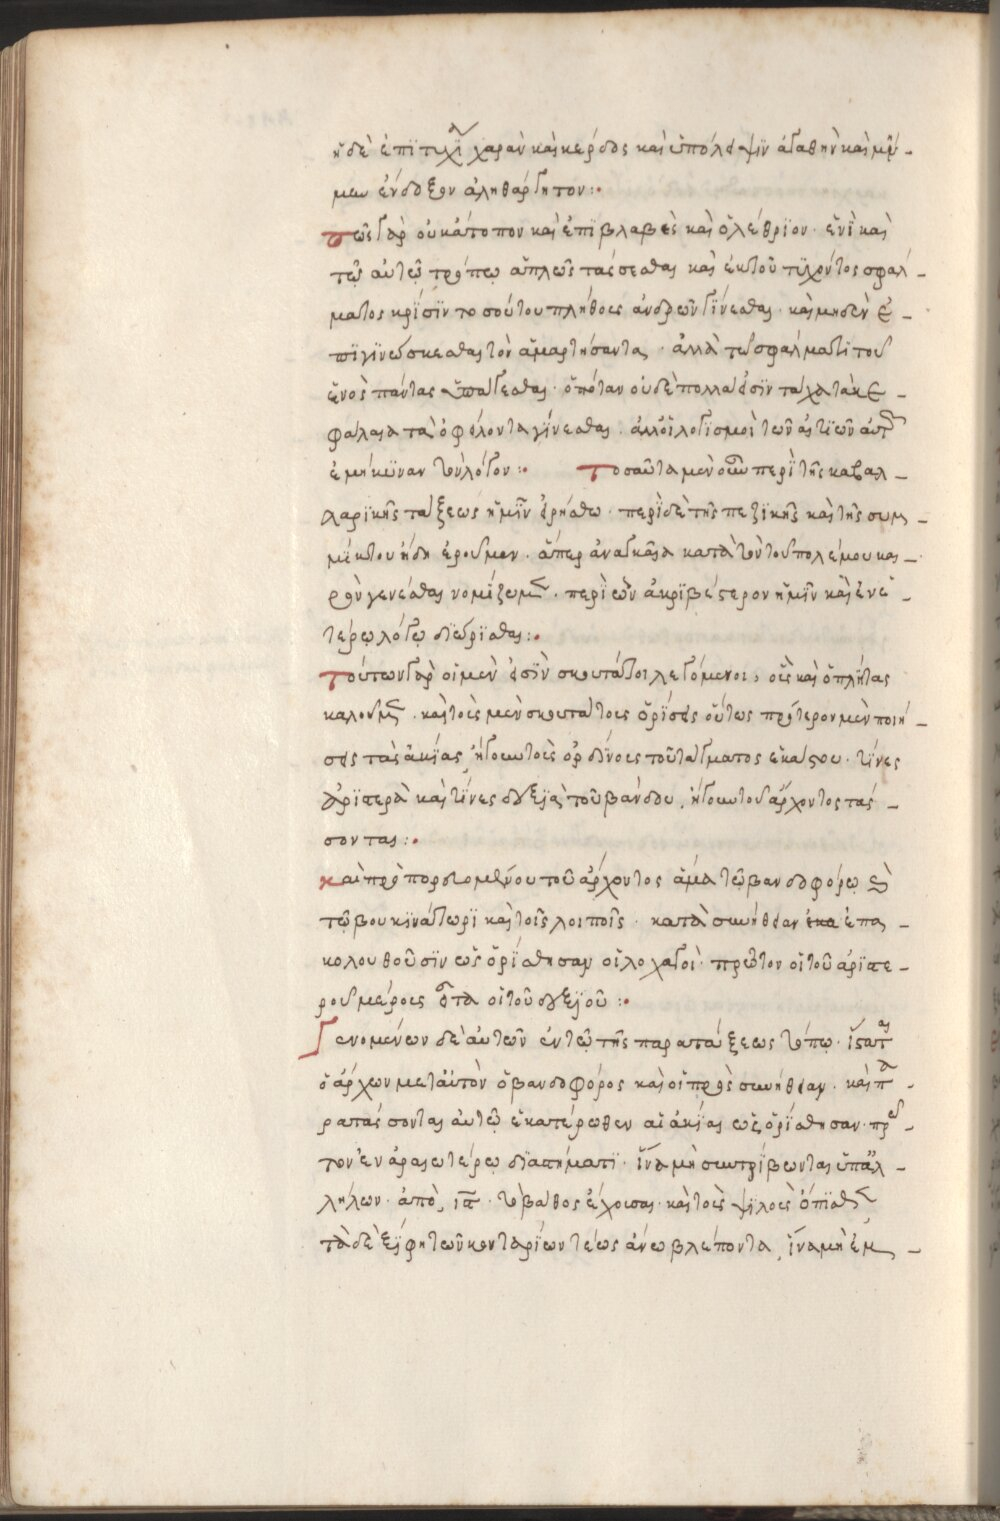 ἡ δὲ ἐπιτυχία χαρὰν καὶ κέρδος καὶ ὑπόληψιν ἀγαθὴν καὶ μνή-
μην ἔνδοξον ἀληθάργητον:
πῶς γὰρ οὐκ ἄτοπον καὶ ἐπιβλαβὲς καὶ ὀλέθριον· ἑνὶ καὶ
τῷ αὐτῷ τρόπῳ ἁπλῶς τάσσεσθαι καὶ ἐκ τοῦ τυχόντος σφάλ-
ματος κρίσιν τοσούτου πλήθους ἀνδρῶν γίνεσθαι· καὶ μηδὲν ἐ-
πιγινώσκεσθαι τὸν ἁμαρτήσαντα· ἀλλὰ τῷ σφάλματι τοῦ
ἑνὸς πάντας ὑπάγεσθαι· ὁπόταν οὐδὲ πολλά εἰσιν τὰ κατὰ κε-
φάλαια τὰ ὀφείλοντα γίνεσθαι· ἀλλ' οἱ λογισμοὶ τῶν αἰτιῶν αὐτῶν
ἐμήκυναν τὸν λόγον: Τοσαῦτα μὲν οὖν περὶ τῆς καβαλ-
λαρικῆς τάξεως ἡμῖν εἰρήσθω· περὶ δὲ τῆς πεζικῆς καὶ τῆς συμ-
μίκτου ἤδη ἐροῦμεν· ἅπερ ἀναγκαῖα κατὰ τὸν τοῦ πολέμου και-
ρὸν γενέσθαι νομίζομεν· περὶ ὧν ἀκριβέστερον ἡμῖν καὶ ἐν ἑ-
τέρῳ λόγῳ διώρισται:
τούτων γὰρ οἱ μέν εἰσιν σκουτάτοι λεγόμενοι, οὓς καὶ ὁπλίτας
καλοῦμεν· καὶ τοὺς μὲν σκουτάτους ὁρίσεις οὕτως πρότερον μὲν ποιή-
σεις τὰς ἀκίας, ἤγουν τοὺς ὀρδίνους τοῦ τάγματος ἑκάστου· τίνες
ἀριστερὰ καὶ τίνες δεξιᾷ τοῦ βάνδου, ἤγουν τοῦ ἄρχοντος τάσ-
σονται:
καὶ προπορευομένου τοῦ ἄρχοντος ἅμα τῷ βανδοφόρῳ καὶ
τῷ βουκινάτωρι καὶ τοῖς λοιποῖς· κατὰ συνήθειαν ἐπα-
κολουθοῦσιν ὡς ὁρίσθησαν οἱ λοχαγοί· πρῶτον οἱ τοῦ ἀριστε-
ροῦ μέρους εἶτα οἱ τοῦ δεξιοῦ:
Γενομένων δὲ αὐτῶν ἐν τῷ τῆς παρατάξεως τόπῳ· ἵσταται
ὁ ἄρχων μετ' αὐτὸν ὁ βανδοφόρος καὶ οἱ πρὸς συνήθειαν· καὶ πα-
ρατάσσονται αὐτῷ ἑκατέρωθεν αἱ ἀκίαι ὡς ὁρίσθησαν· πρῶ-
τον ἐν ἀραιωτέρῳ διαστήματι· ἵνα μὴ συντρίβωνται ὑπ' ἀλ-
λήλων· ἀπὸ ιϛ· τὸ βάθος ἔχουσαι· καὶ τοὺς ψιλοὺς ὄπισθεν
τὰ δὲ ξίφη τῶν κονταρίων τέως ἄνω βλέποντα, ἵνα μὴ ἐμ-